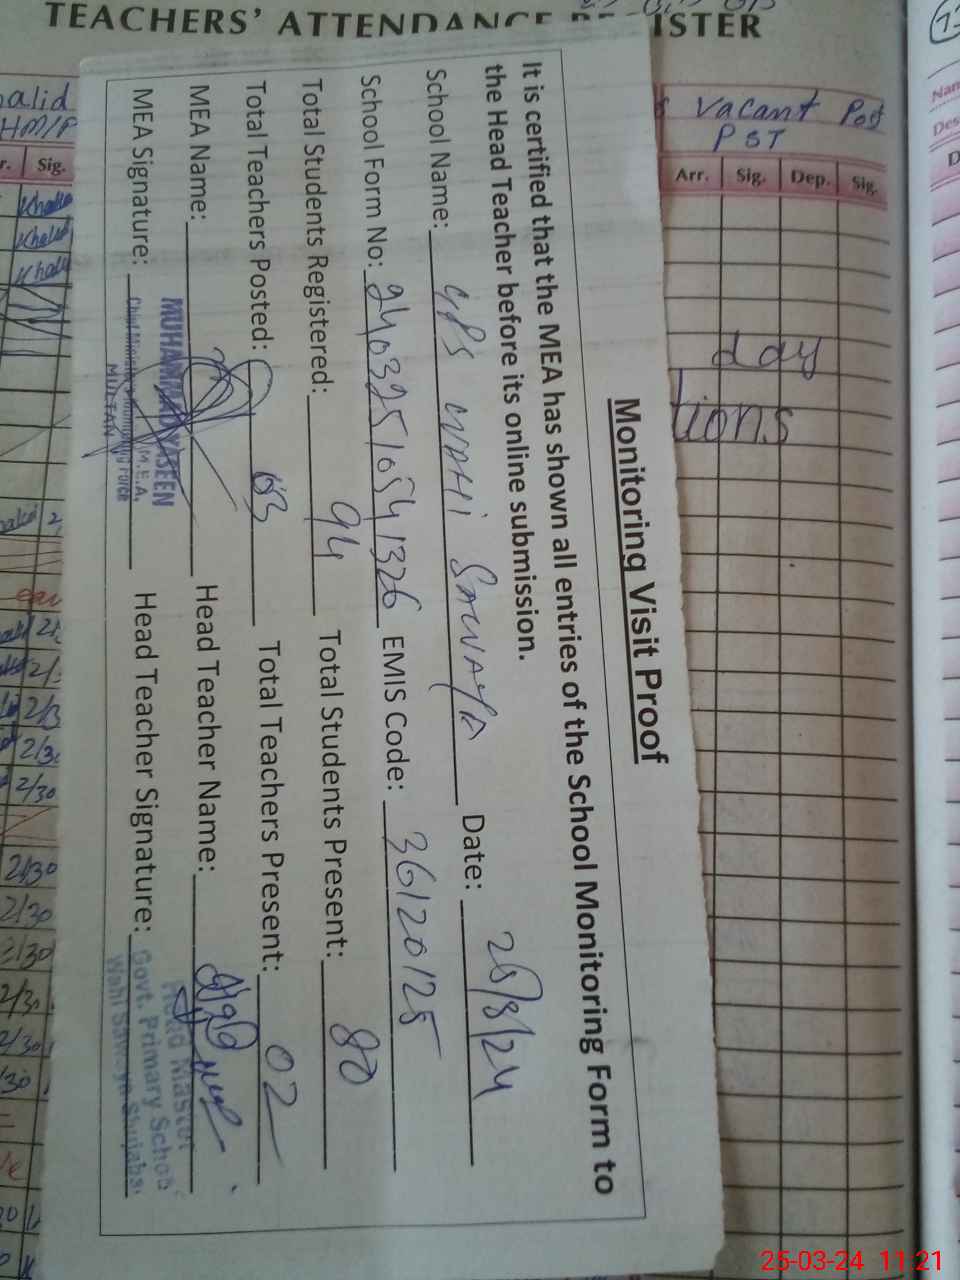 TEACHERS' ATTENDANCE REGISTER
Monitoring Visit Proof
It is certified that the MEA has shown all entries of the School Monitoring Form to
the Head Teacher before its online submission.
School Name: GPS WAHI SAWAYA Date: 25/3/24
School Form No: 24032510541326 EMIS Code: 36120125
Total Students Registered: 94 Total Students Present: 80
Total Teachers Posted: 03 Total Teachers Present: 02
MEA Name: Head Teacher Name:
MUHAMMAD YASEEN
MEA Signature: Head Teacher Signature:
Chief Minister's Monitoring Force
M.E.A.
MULTAN
Head Master
Govt. Primary School
Wahi Sawaya Shujabad
Vacant Post
PST
Arr. Sig. Dep. Sig.
day
tions
alid
HM/P
r. Sig.
Khalid
Khalid
Khalid
2/30
2/30
2/30
2/30
2/30
2/30
2/30
25-03-24 11:21